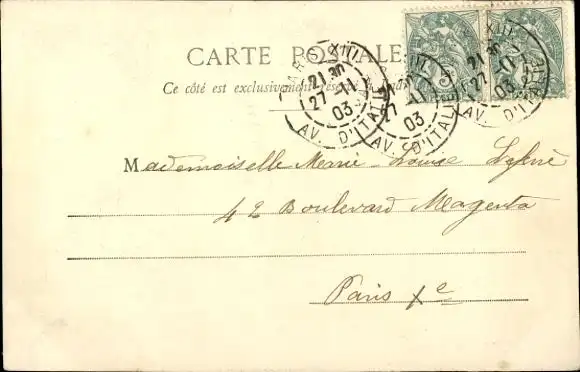 CARTE POSTALE
Ce côté est exclusivement réservé à
PARIS XIII
21 30
27 11
03
AV. D'ITALIE
21 30
27 11
03
AV. D'ITALIE
27 11
03
AV. D'ITALIE
Mademoiselle Marie-Louise
42 Boulevard Magenta
Paris Xe